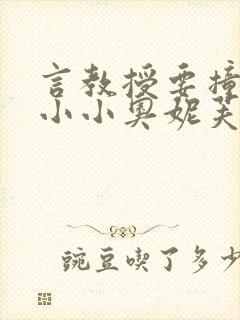 言教授要撞
小小奥妮芙
豌豆喫了多少